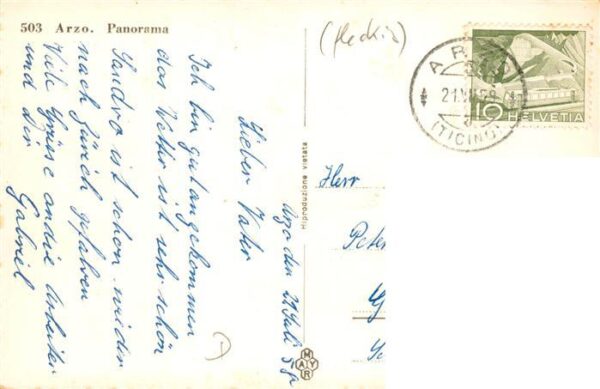 503 Arzo. Panorama
(fleckig)
ARZO
21.VII.59
(TICINO)
10 HELVETIA
Arzo den 21 Juli 59
Lieber Vater
Ich bin gut angekommen
das Wetter ist sehr schön
Sandro ist schon wieder
nach Zürich gefahren
Viele Grüsse an die Arbeiter
und Dir Gabriel
Riproduzione vietata
MAYR
Herr
Peter